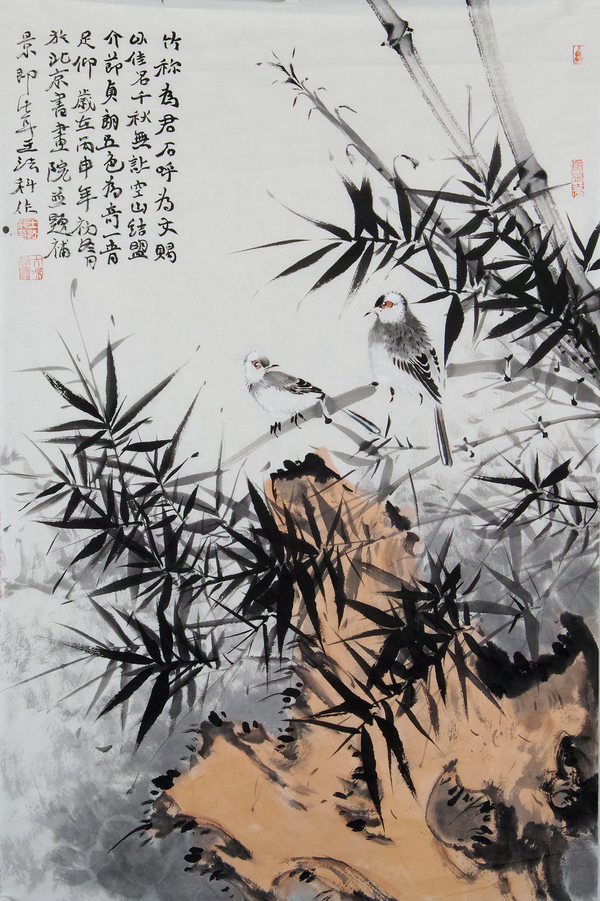 竹称为君石呼为丈赐
以佳名千秋无让空山结盟
介节贞朗五色为奇一青
足仰 岁在丙申年初冬月
于北京书画院并题补
景即 法科作